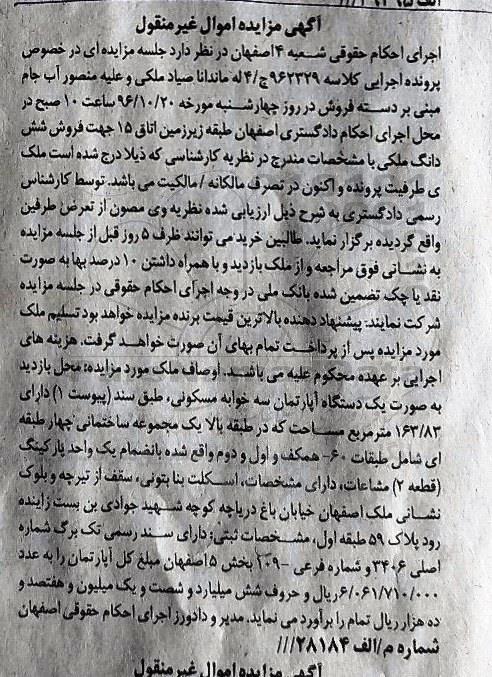 آگهی مزایده اموال غیر منقول
اجرای احکام حقوقی شعبه ۴ اصفهان در نظر دارد جلسه مزایده ای در خصوص
پرونده اجرایی کلاسه ۹۶۲۳۲۹ج/۴ له ماندانا صیاد ملکی و علیه منصور آب جام
مبنی بر دسته فروش در روز چهارشنبه مورخه ۹۶/۱۰/۲۰ ساعت ۱۰ صبح در
محل اجرای احکام دادگستری اصفهان طبقه زیرزمین اتاق ۱۵ جهت فروش شش
دانگ ملکی با مشخصات مندرج در نظریه کارشناسی که ذیلا درج شده است ملک
ی طرفیت پرونده و اکنون در تصرف مالکانه / مالکیت می باشد. توسط کارشناس
رسمی دادگستری به شرح ذیل ارزیابی شده نظریه وی مصون از تعرض طرفین
واقع گردیده برگزار نماید. طالبین خرید می توانند ظرف ۵ روز قبل از جلسه مزایده
به نشانی فوق مراجعه و از ملک بازدید و با همراه داشتن ۱۰ درصد بها به صورت
نقد یا چک تضمین شده بانک ملی در وجه اجرای احکام حقوقی در جلسه مزایده
شرکت نمایند. پیشنهاد دهنده بالاترین قیمت برنده مزایده خواهد بود تسلیم ملک
مورد مزایده پس از پرداخت تمام بهای آن صورت خواهد گرفت. هزینه های
اجرایی بر عهده محکوم علیه می باشد. اوصاف ملک مورد مزایده: محل بازدید
به صورت یک دستگاه آپارتمان سه خوابه مسکونی، طبق سند (پیوست ۱) دارای
۱۶۳/۸۳ مترمربع مساحت که در طبقه بالا یک مجموعه ساختمانی چهار طبقه
ای شامل طبقات ۶۰- همکف و اول و دوم واقع شده بانضمام یک واحد پارکینگ
(قطعه ۲) مشاعات، دارای مشخصات، اسکلت بنا بتونی، سقف از تیرچه و بلوک
نشانی ملک اصفهان خیابان باغ دریاچه کوچه شهید جوادی بن بست زاینده
رود پلاک ۵۹ طبقه اول، مشخصات ثبتی: دارای سند رسمی تک برگ شماره
اصلی ۳۴۰۶ و شماره فرعی بخش ۵ اصفهان مبلغ کل آپارتمان را به عدد
۶/۰۶۱/۷۱۰/۰۰۰ ریال و حروف شش میلیارد و شصت و یک میلیون و هفتصد و
ده هزار ریال تمام را برآورد می نماید. مدیر و دادورز اجرای احکام حقوقی اصفهان
شماره م/الف ۲۸۱۸۴///
آگهی مزایده اموال غیر منقول